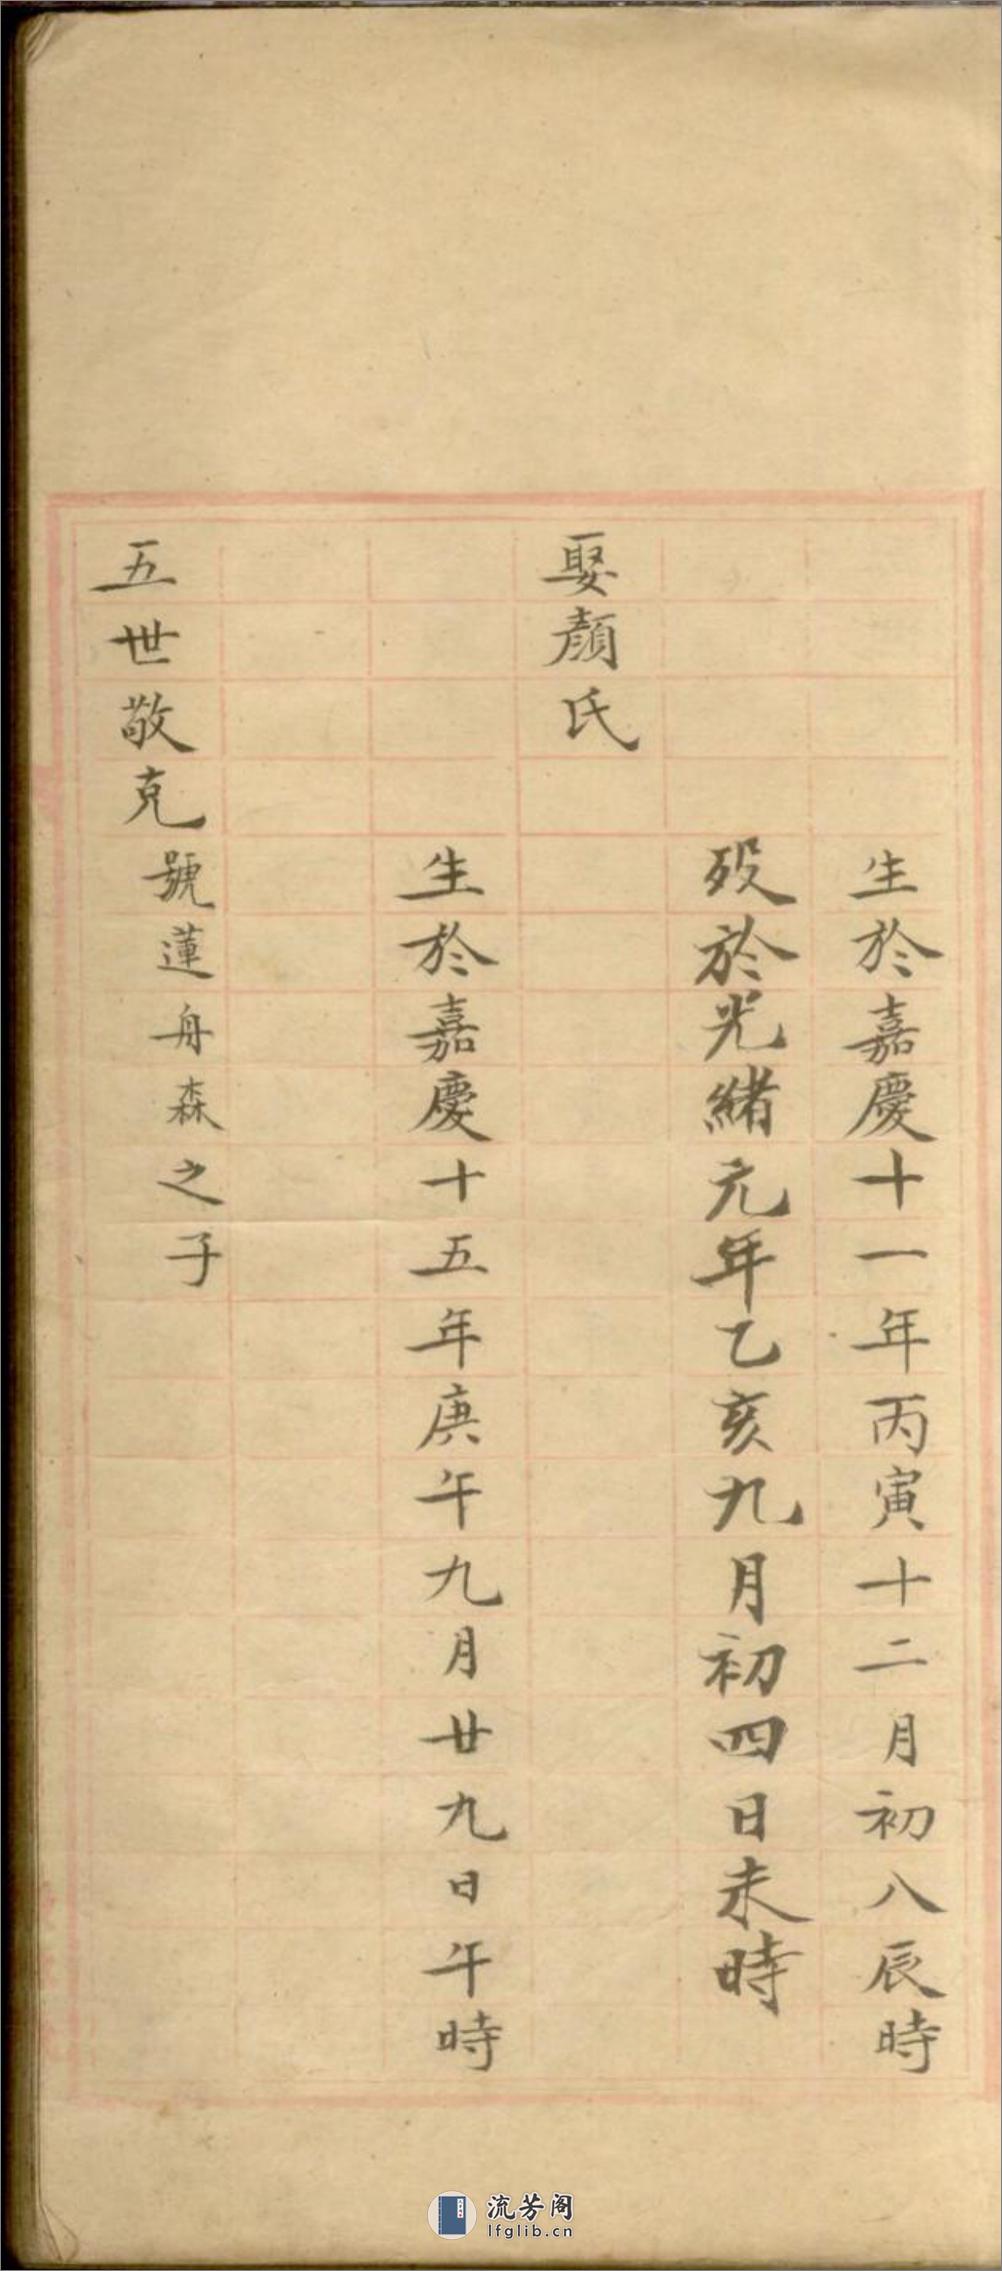 生於嘉慶十一年丙寅十二月初八辰時
歿於光緒元年乙亥九月初四日未時
娶顏氏
生於嘉慶十五年庚午九月廿九日午時
五世敬克號蓮舟森之子
流芳阁
lfglib.cn